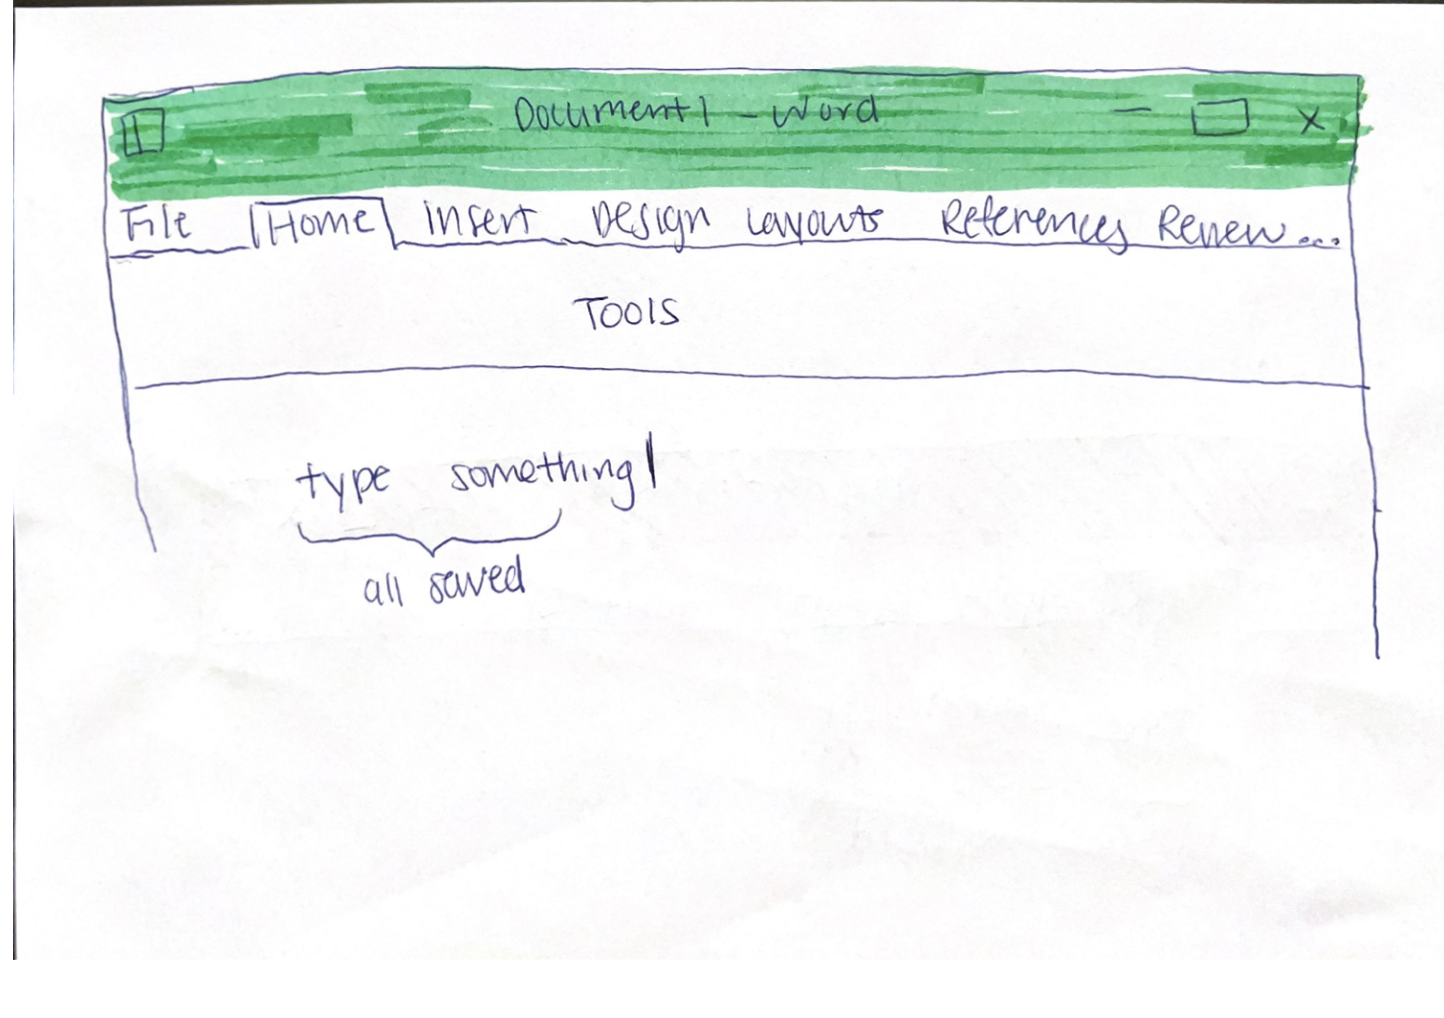 Document1 - Word
File Home insert Design Layouts References Review...
Tools
type something
all saved